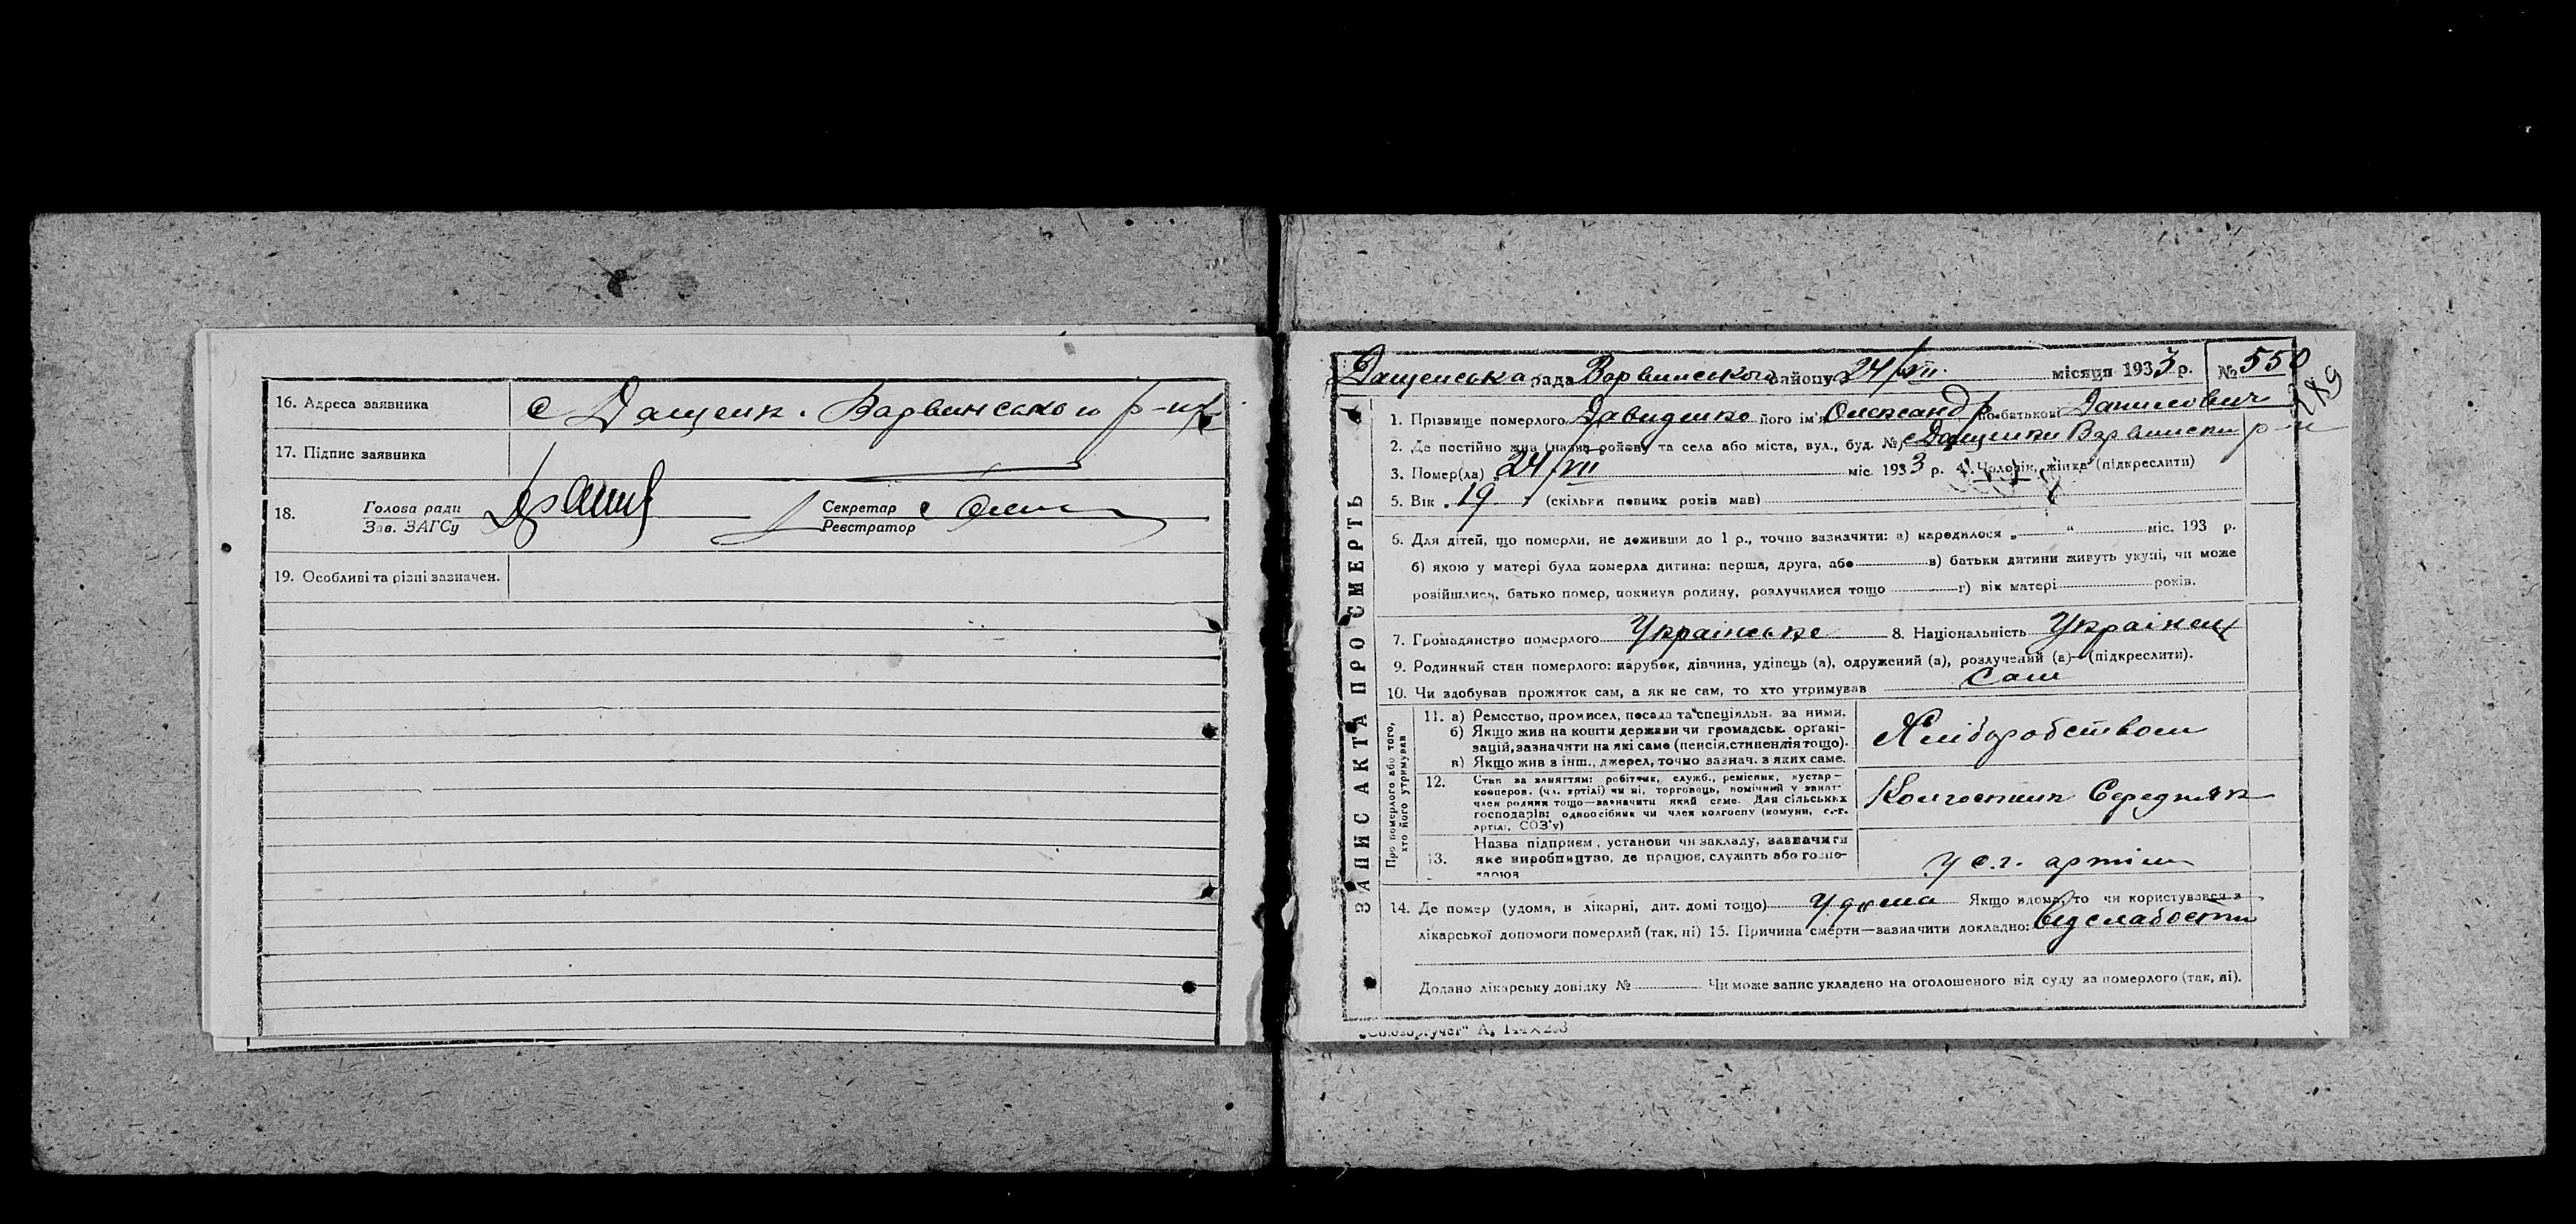 16. Адреса заявника с Дащенк. Варвинського р-ну
17. Підпис заявника
18. Голова ради Секретар
Зав. ЗАГСу Реєстратор
19. Особливі та різні зазначен.
ЗАПИС АКТА ПРО СМЕРТЬ
Дащенська рада Варвинського району 24/VII місяця 1933 р. № 550
189
1. Прізвище померлого Давиденко його ім'я Олександр по батькові Данилович
2. Де постійно жив (назва району та села або міста, вул., буд. №) с Дащенки Варвински р-н
3. Помер(ла) „ 24/VII міс. 1933 р. 4. Чоловік, жінка (підкреслити)
5. Вік 19 (скільки повних років мав)
6. Для дітей, що померли, не доживши до 1 р., точно зазначити: а) народилося „ “ міс. 193 р.
б) якою у матері була померла дитина: перша, друга, або в) батьки дитини живуть укупі, чи може
розійшлися, батько помер, покинув родину, розлучилися тощо г) вік матері років.
7. Громадянство померлого Українське 8. Національність Українец
9. Родинний стан померлого: парубок, дівчина, удівець (а), одружений (а), розлучений (а)—(підкреслити).
10. Чи здобував прожиток сам, а як не сам, то хто утримував Сам
Про померлого або того, хто його утримував
11. а) Ремество, промисел, посада та спеціяльн. за ними.
б) Якщо жив на кошти держави чи громадськ. органі-
зацій, зазначити на які саме (пенсія, стипендія тощо).
в) Якщо жив з інш., джерел, точно зазнач. з яких саме.
Хліборобством
12. Стан за заняттям: робітник, служб., ремісник, кустар—
кооперов. (чл. артілі) чи ні, торговець, помічний у занят.
член родини тощо—зазначити який саме. Для сільських
господарів: одноосібник чи член колгоспу (комуни, с.-г.
артілі, СОЗ'у)
Колгоспник Середняк
13. Назва підприєм, установи чи закладу, зазначити
яке виробництво, де працює, служить або госпо-
дарює
У с.г. артіли
14. Де помер (удома, в лікарні, дит. домі тощо) Удома Якщо вдома, то чи користувався з
лікарської допомоги померлий (так, ні) 15. Причина смерти—зазначити докладно: від слабости
Додано лікарську довідку № Чи може запис укладено на оголошеного від суду за померлого (так, ні).